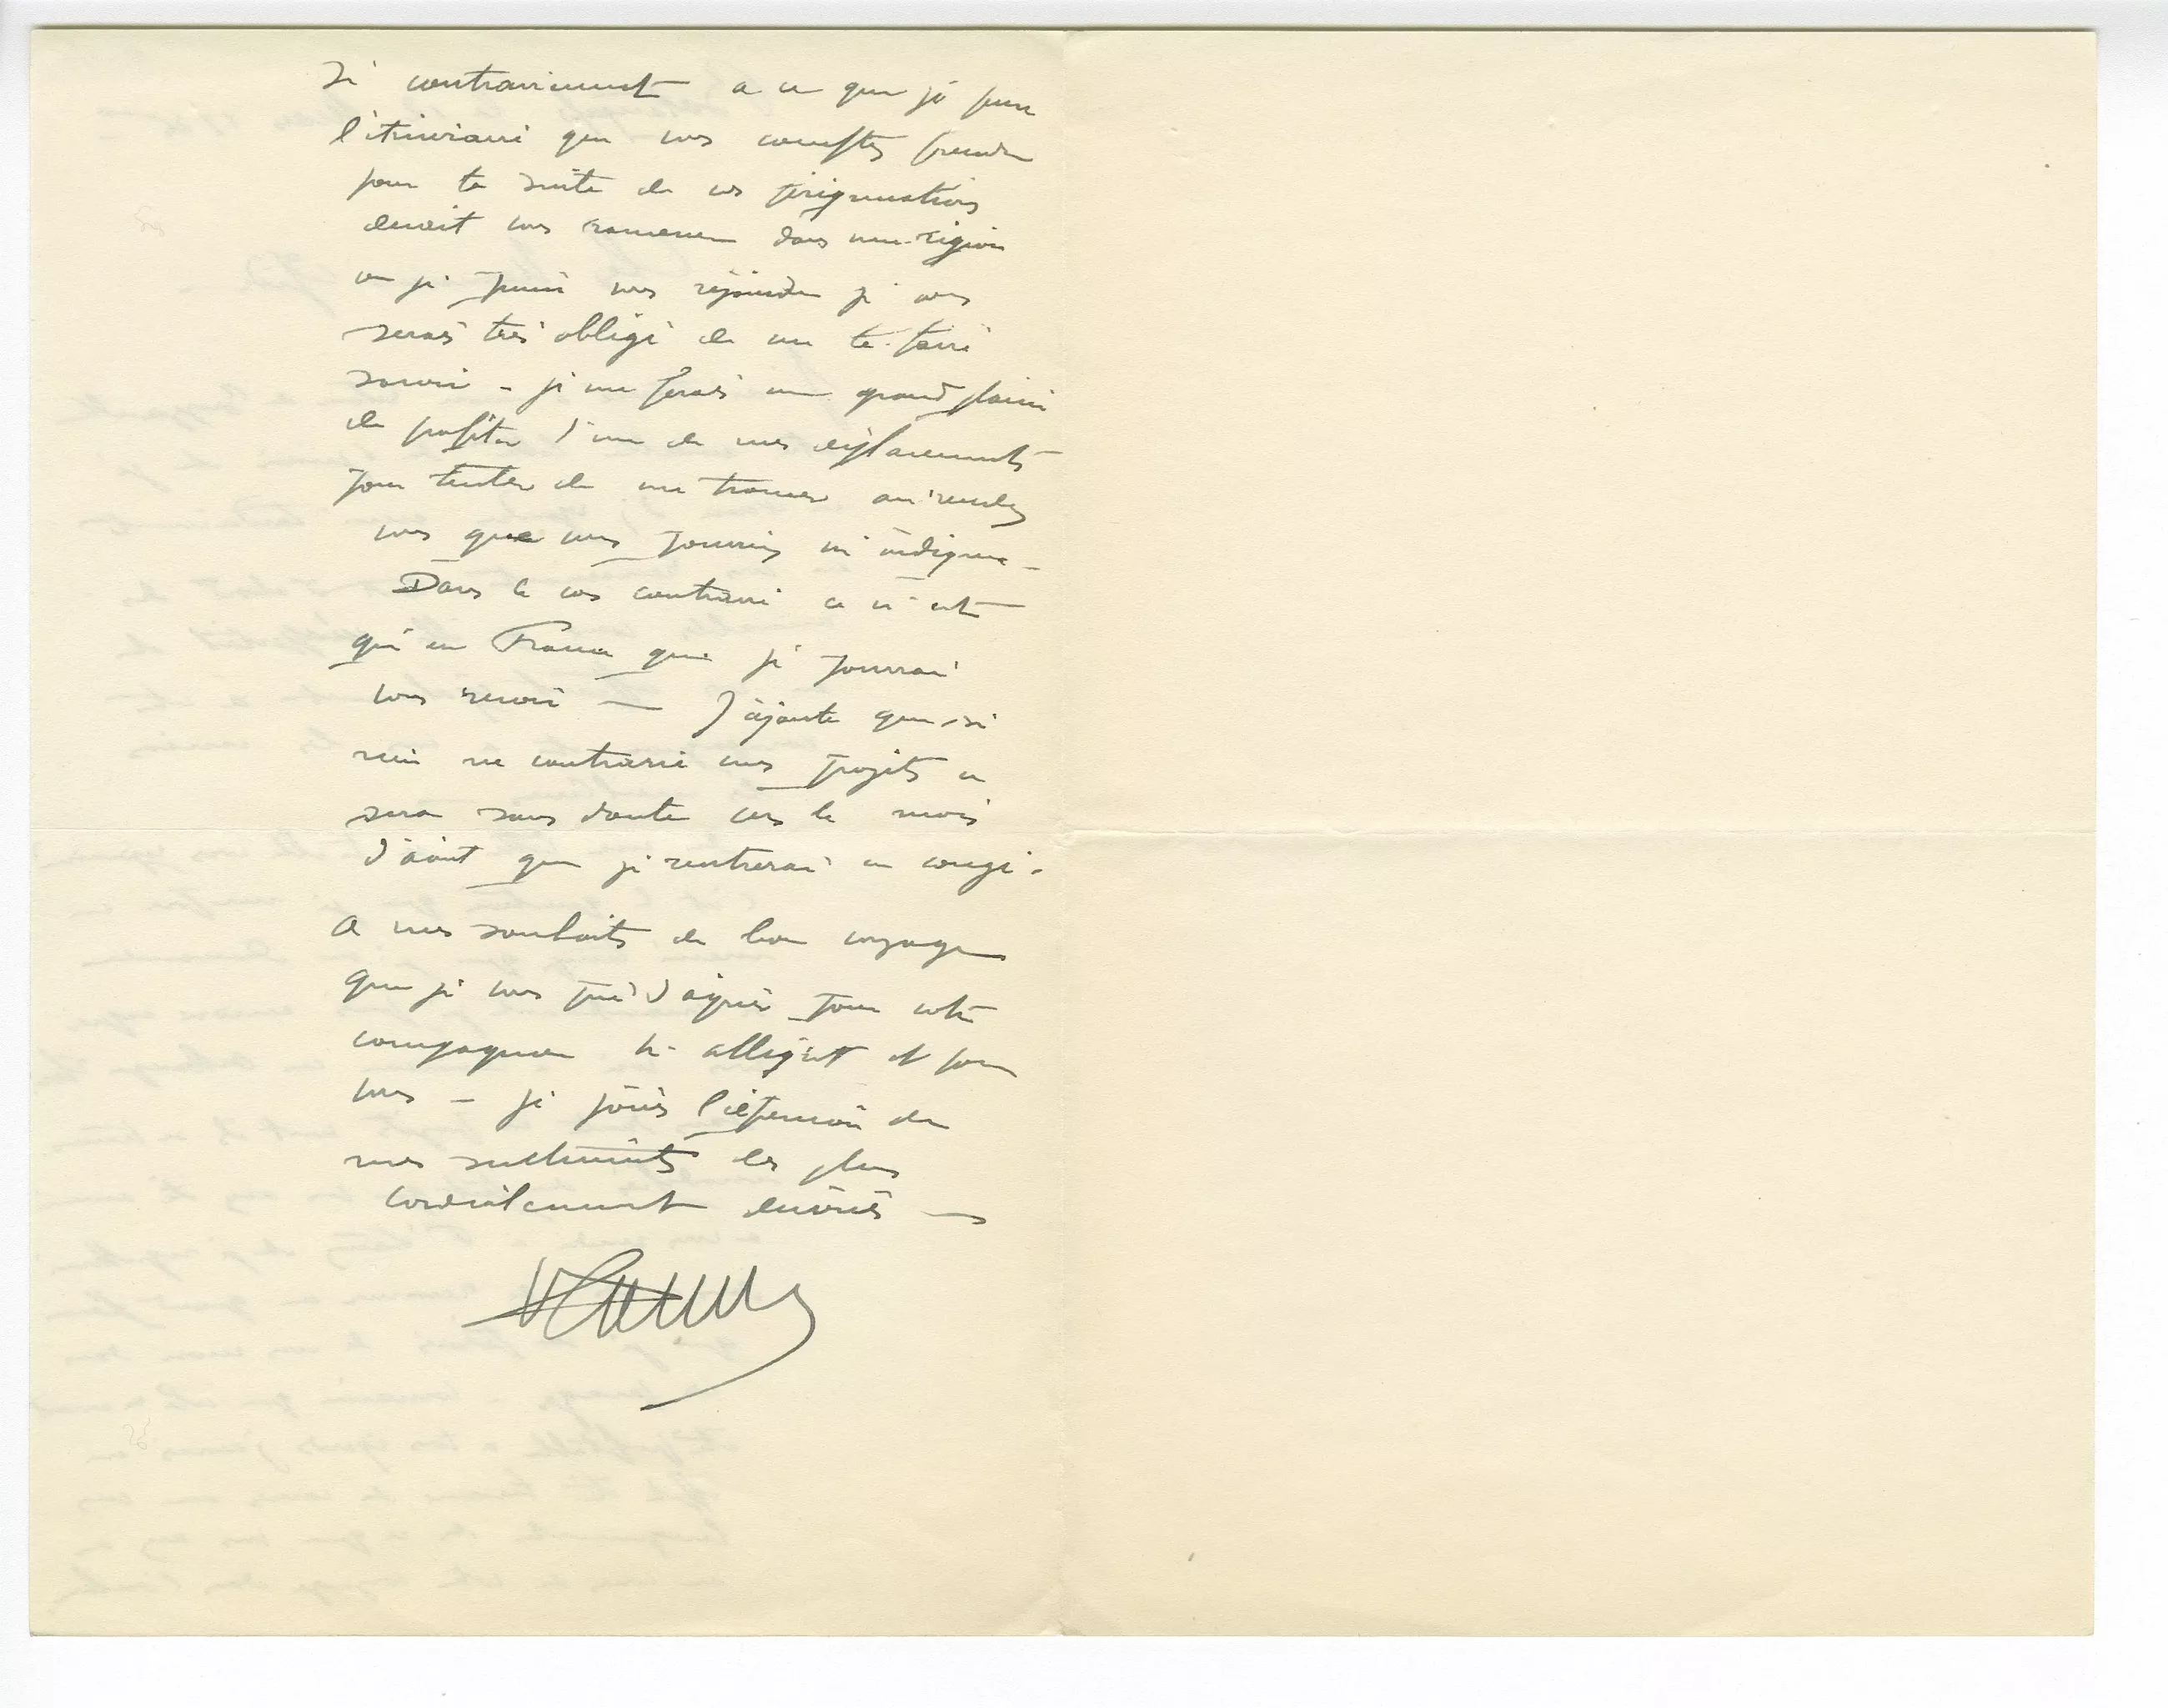 Si contrairement à ce que je pense
l'itinéraire que vous comptez prendre
pour la suite de vos pérégrinations
devait vous ramener dans une région
où je puisse vous rejoindre je vous
serais très obligé de me le faire
savoir – je me ferais un grand plaisir
de profiter d'un de mes déplacements
pour tenter de me trouver au rendez
vous que vous pourriez m'indiquer –
Dans le cas contraire ce n'est
qu'en France que je pourrai
vous revoir — J'ajoute que si
rien ne contrarie mes projets ce
sera sans doute vers le mois
d'août que je rentrerai en congé.
A mes souhaits de bon voyage
que je vous prie d'agréer pour votre
compagnon et pour
vous – je joins l'expression de
mes sentiments les plus
cordialement dévoués —